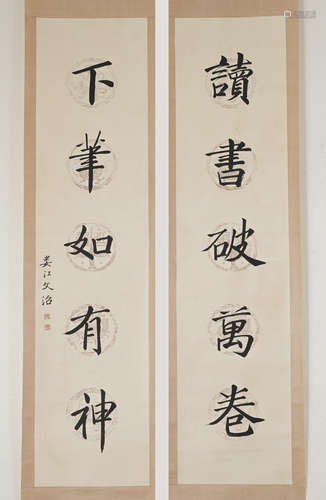 讀書破萬卷
下筆如有神
婁江文治